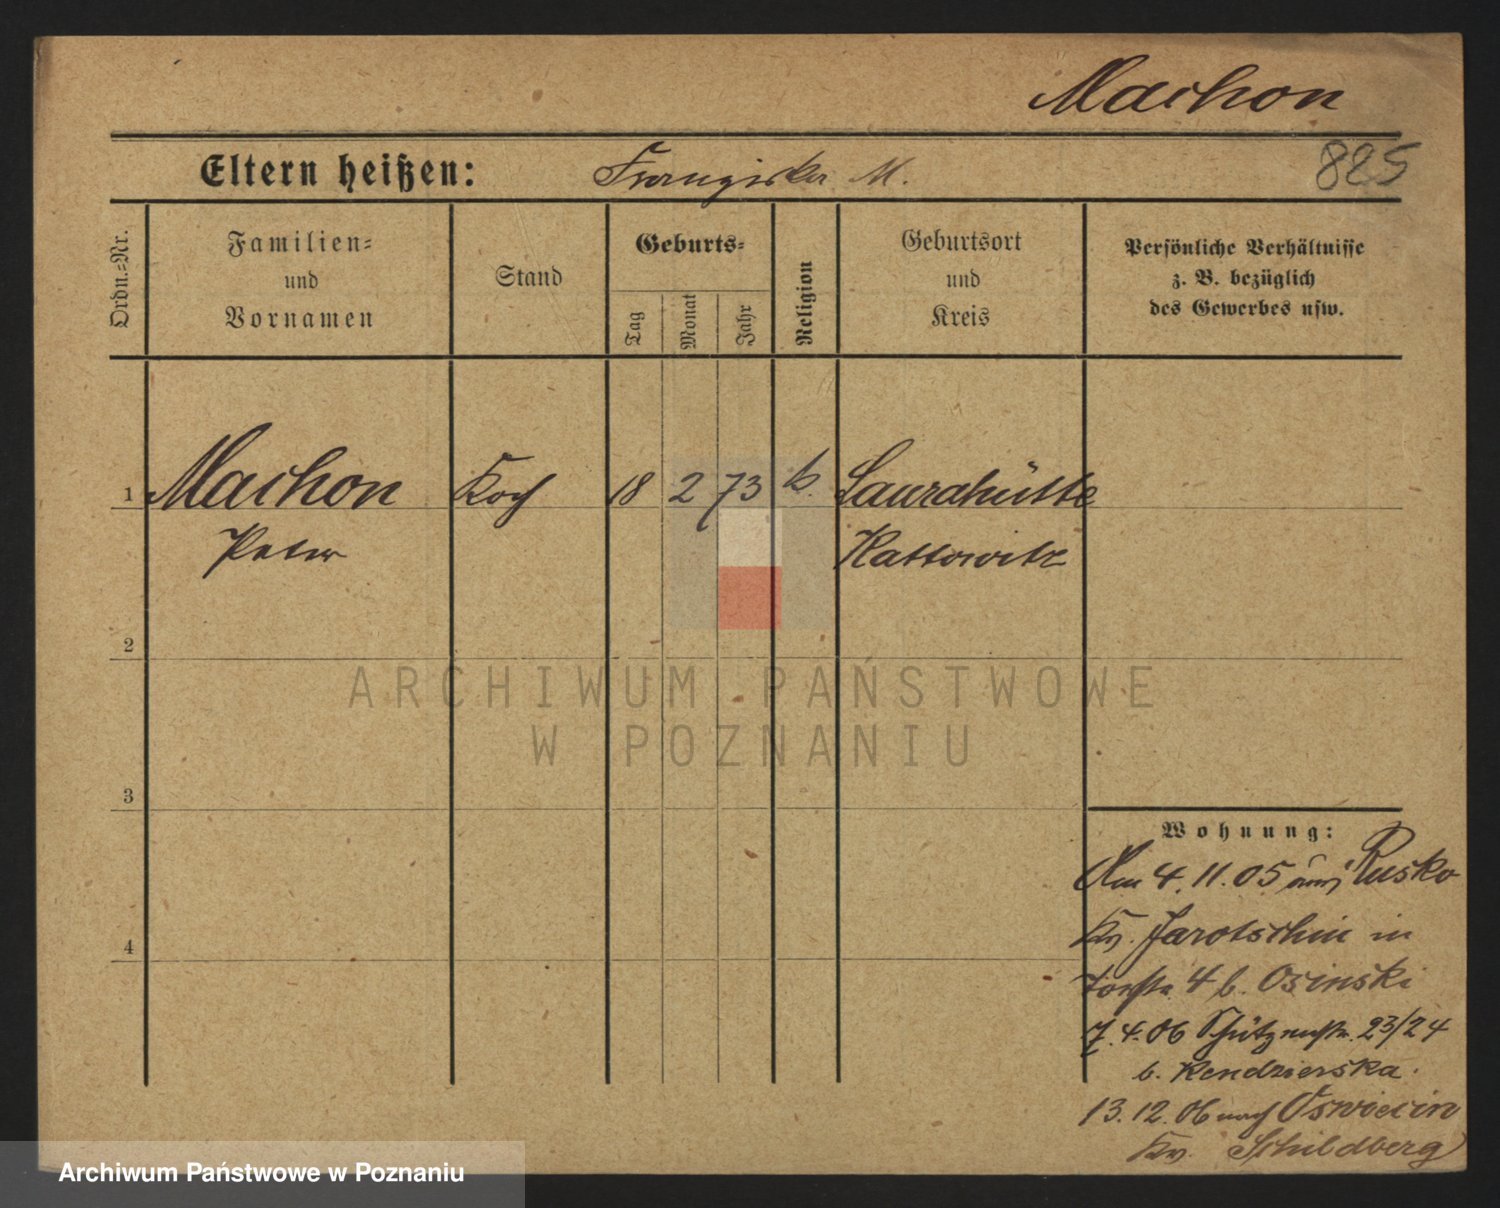 Machon
Eltern heißen: Franziska M.
825
Ordn.=Nr.
Familien=
und
Vornamen
Stand
Geburts=
Tag
Monat
Jahr
Religion
Geburtsort
und
Kreis
Persönliche Verhältnisse
z. B. bezüglich
des Gewerbes usw.
1 Machon Koch 18 2 73 k. Laurahütte
Peter Kattowitz
2
ARCHIWUM PAŃSTWOWE
W POZNANIU
3
Wohnung:
Am 4.11.05 aus Rusko
Kr. Jarotschin in
4 b. Osinski
4
7.4.06 Schützenstr. 23/24
b. Kendzierska.
13.12.06 nach Oswiecin
Kr. Schildberg
Archiwum Państwowe w Poznaniu